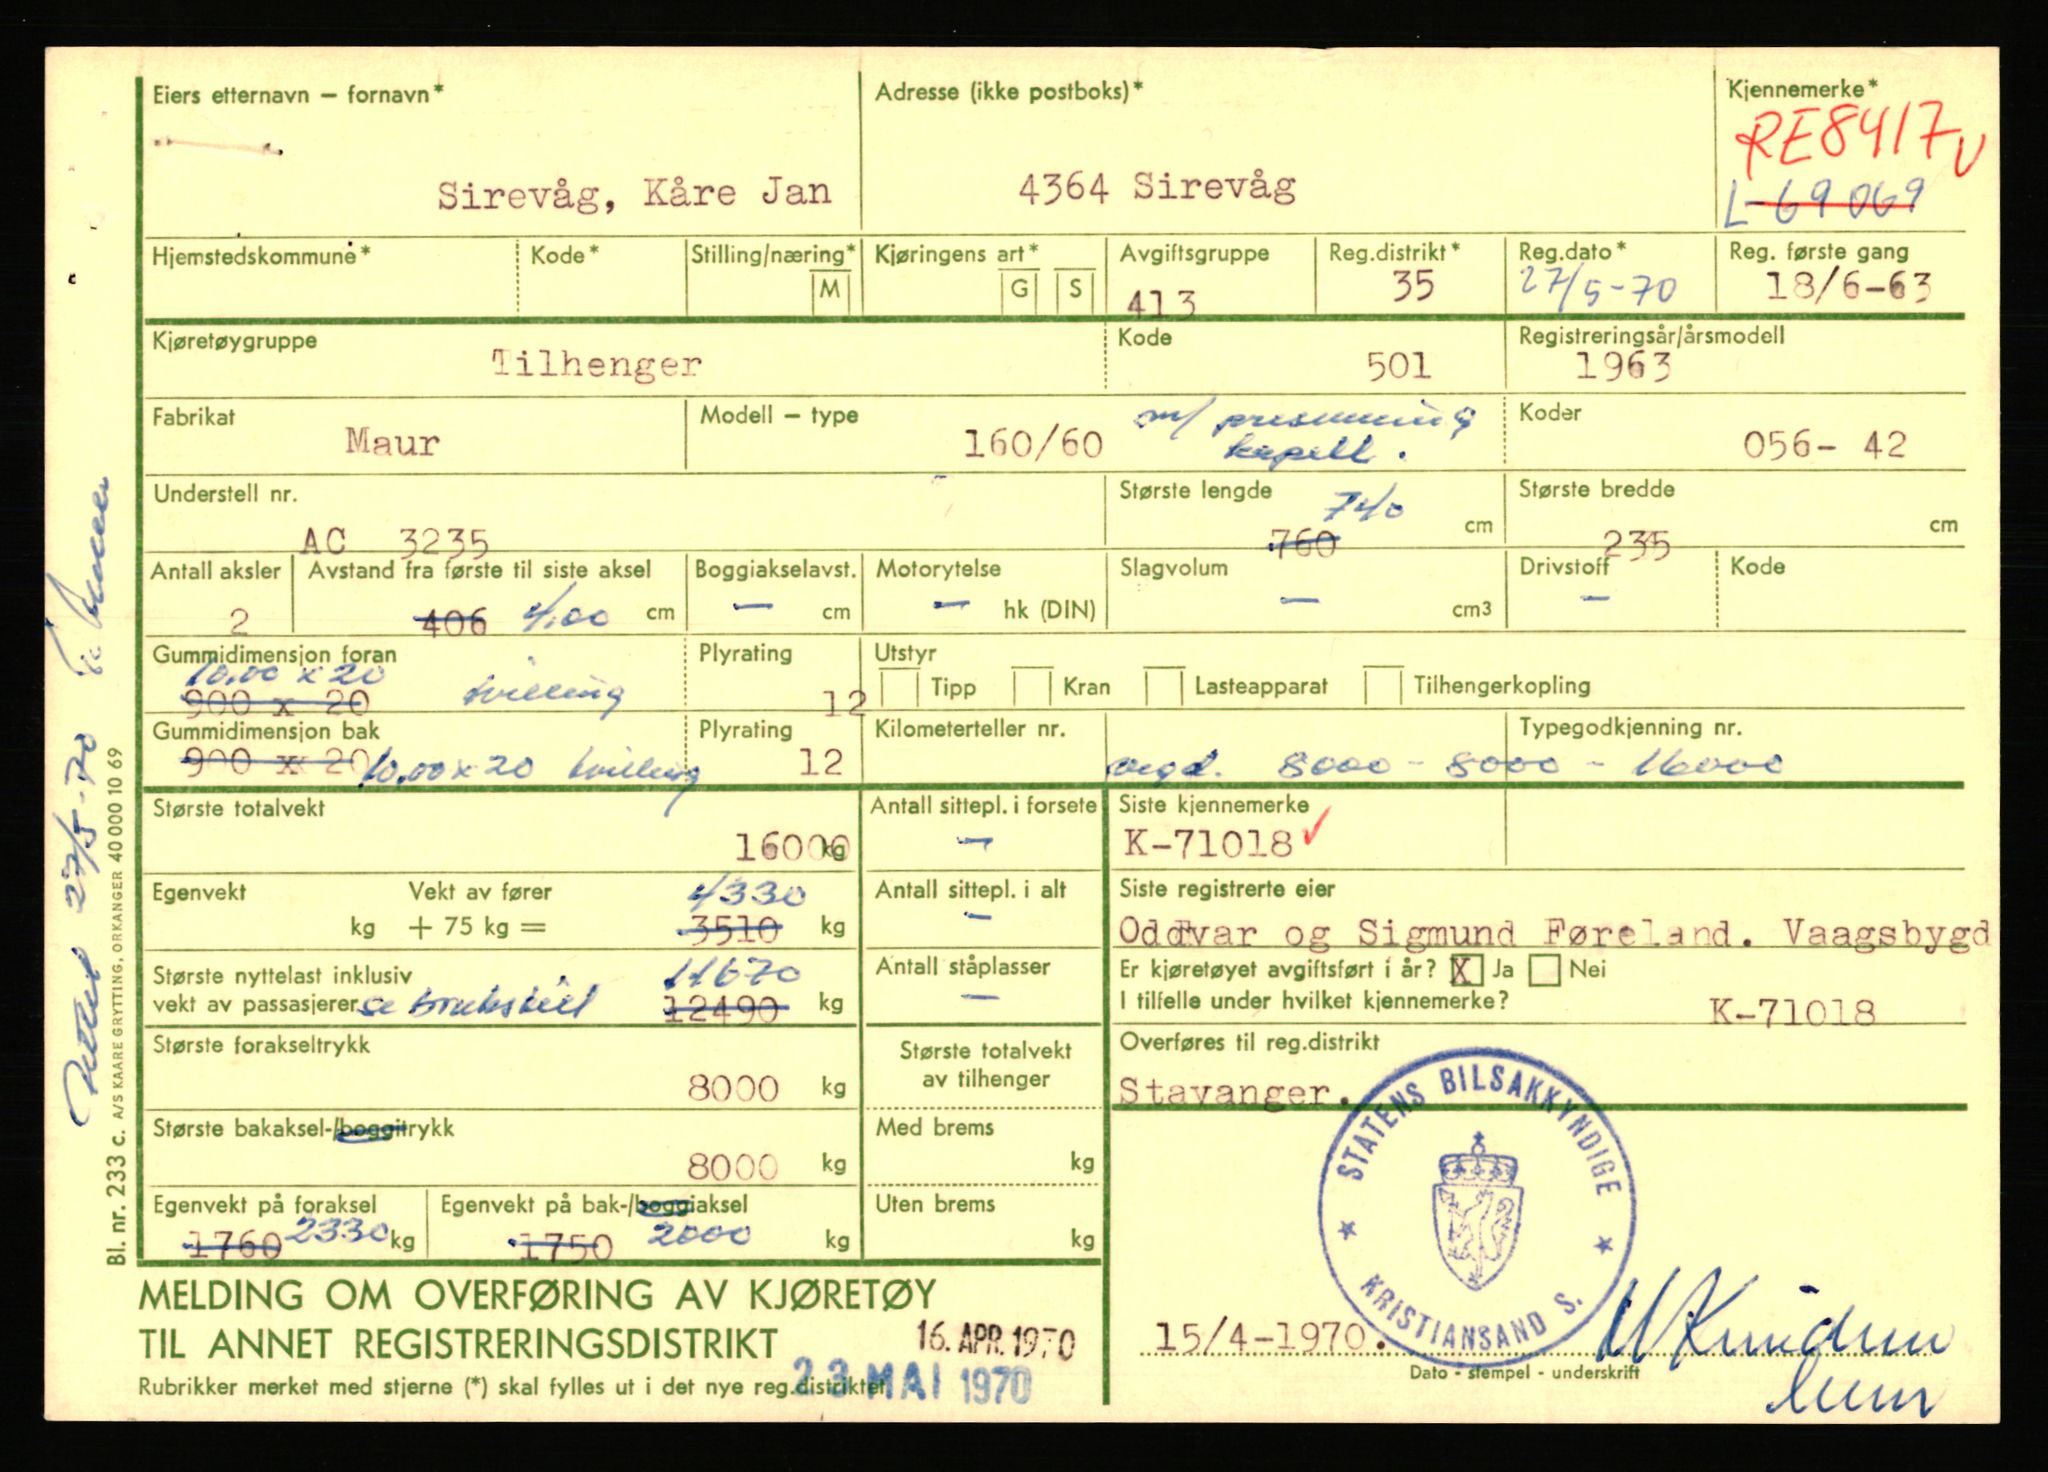 Eiers etternavn – fornavn*
Sirevåg, Kåre Jan
Adresse (ikke postboks)*
4364 Sirevåg
Kjennemerke*
RE8417
L-69069
Hjemstedskommune*
Kode*
Stilling/næring*
M
Kjøringens art*
G S
Avgiftsgruppe
413
Reg.distrikt*
35
Reg.dato*
27/5-70
Reg. første gang
18/6-63
Kjøretøygruppe
Tilhenger
Kode
501
Registreringsår/årsmodell
1963
Fabrikat
Maur
Modell – type
160/60
m/ presenning
kapell.
Koder
056- 42
Understell nr.
AC 3235
Største lengde
740
760 cm
Største bredde
235 cm
Antall aksler
2
Avstand fra første til siste aksel
406 4,00 cm
Boggiakselavst.
– cm
Motorytelse
– hk (DIN)
Slagvolum
– cm3
Drivstoff
–
Kode
Gummidimensjon foran
10.00 x 20
900 x 20 tvilling
Plyrating
12
Utstyr
Tipp Kran Lasteapparat Tilhengerkopling
Gummidimensjon bak
900 x 20 10.00 x 20 tvilling
Plyrating
12
Kilometerteller nr.
Typegodkjenning nr.
8000 - 8000 - 16000
Største totalvekt
16000 kg
Antall sittepl. i forsete
–
Siste kjennemerke
K-71018
Egenvekt Vekt av fører
4330
kg + 75 kg = 3510 kg
Antall sittepl. i alt
–
Siste registrerte eier
Oddvar og Sigmund Føreland. Vaagsbygd
Største nyttelast inklusiv
11670
vekt av passasjerer se 12490 kg
Antall ståplasser
–
Er kjøretøyet avgiftsført i år? X Ja Nei
I tilfelle under hvilket kjennemerke?
K-71018
Største forakseltrykk
8000 kg
Største totalvekt
av tilhenger
Overføres til reg.distrikt
Stavanger.
Største bakaksel-/boggitrykk
8000 kg
Med brems
kg
Egenvekt på foraksel
1760 2330 kg
Egenvekt på bak-/boggiaksel
1750 2000 kg
Uten brems
kg
STATENS BILSAKKYNDIGE
KRISTIANSAND S.
MELDING OM OVERFØRING AV KJØRETØY
TIL ANNET REGISTRERINGSDISTRIKT
16. APR. 1970
23 MAI 1970
Rubrikker merket med stjerne (*) skal fylles ut i det nye reg.distriktet
15/4-1970.
Dato - stempel - underskrift
Bl. nr. 233 c. A/S KAARE GRYTTING, ORKANGER 40 000 10 69
27/5-70